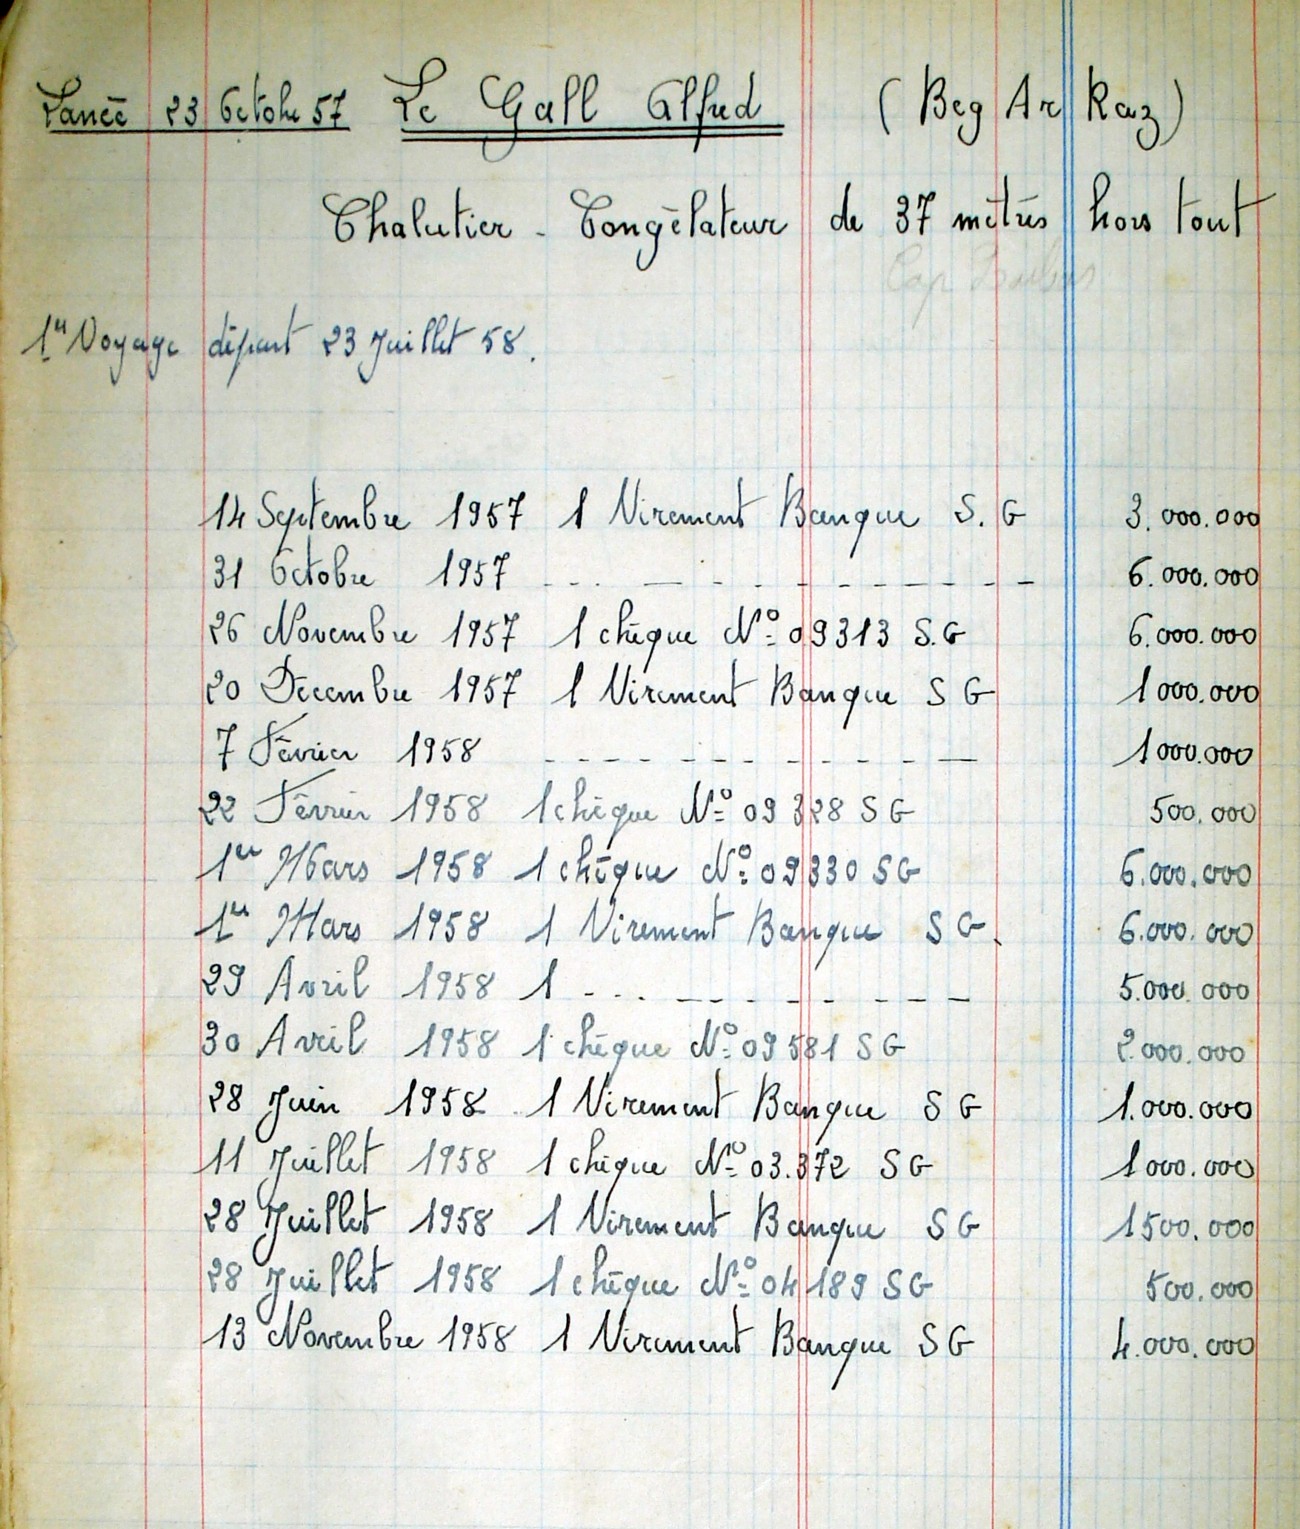 Lancé 23 Octobre 57 Le Gall Alfred (Beg Ar Raz)
Chalutier - Congélateur de 37 mètres hors tout
Cap
1er Voyage départ 23 Juillet 58.
14 Septembre 1957 1 Virement Banque S. G 3.000.000
31 Octobre 1957 - - - - - - - - - - - - 6.000.000
26 Novembre 1957 1 chèque No 09313 S.G 6.000.000
20 Decembre 1957 1 Virement Banque S G 1 000.000
7 Février 1958 - - - - - - - - - - - 1 000.000
22 Février 1958 1 chèque No 09 328 S G 500.000
1er Mars 1958 1 chèque No 09330 S G 6.000.000
1er Mars 1958 1 Virement Banque S G. 6.000.000
29 Avril 1958 1 - - - - - - - - - - 5.000.000
30 Avril 1958 1 chèque No 09581 S G 2.000.000
28 Juin 1958 1 Virement Banque S G 1.000.000
11 Juillet 1958 1 chèque No 03.372 S G 1 000.000
28 Juillet 1958 1 Virement Banque S G 1500.000
28 Juillet 1958 1 chèque No 04189 S G 500.000
13 Novembre 1958 1 Virement Banque S G 4.000.000